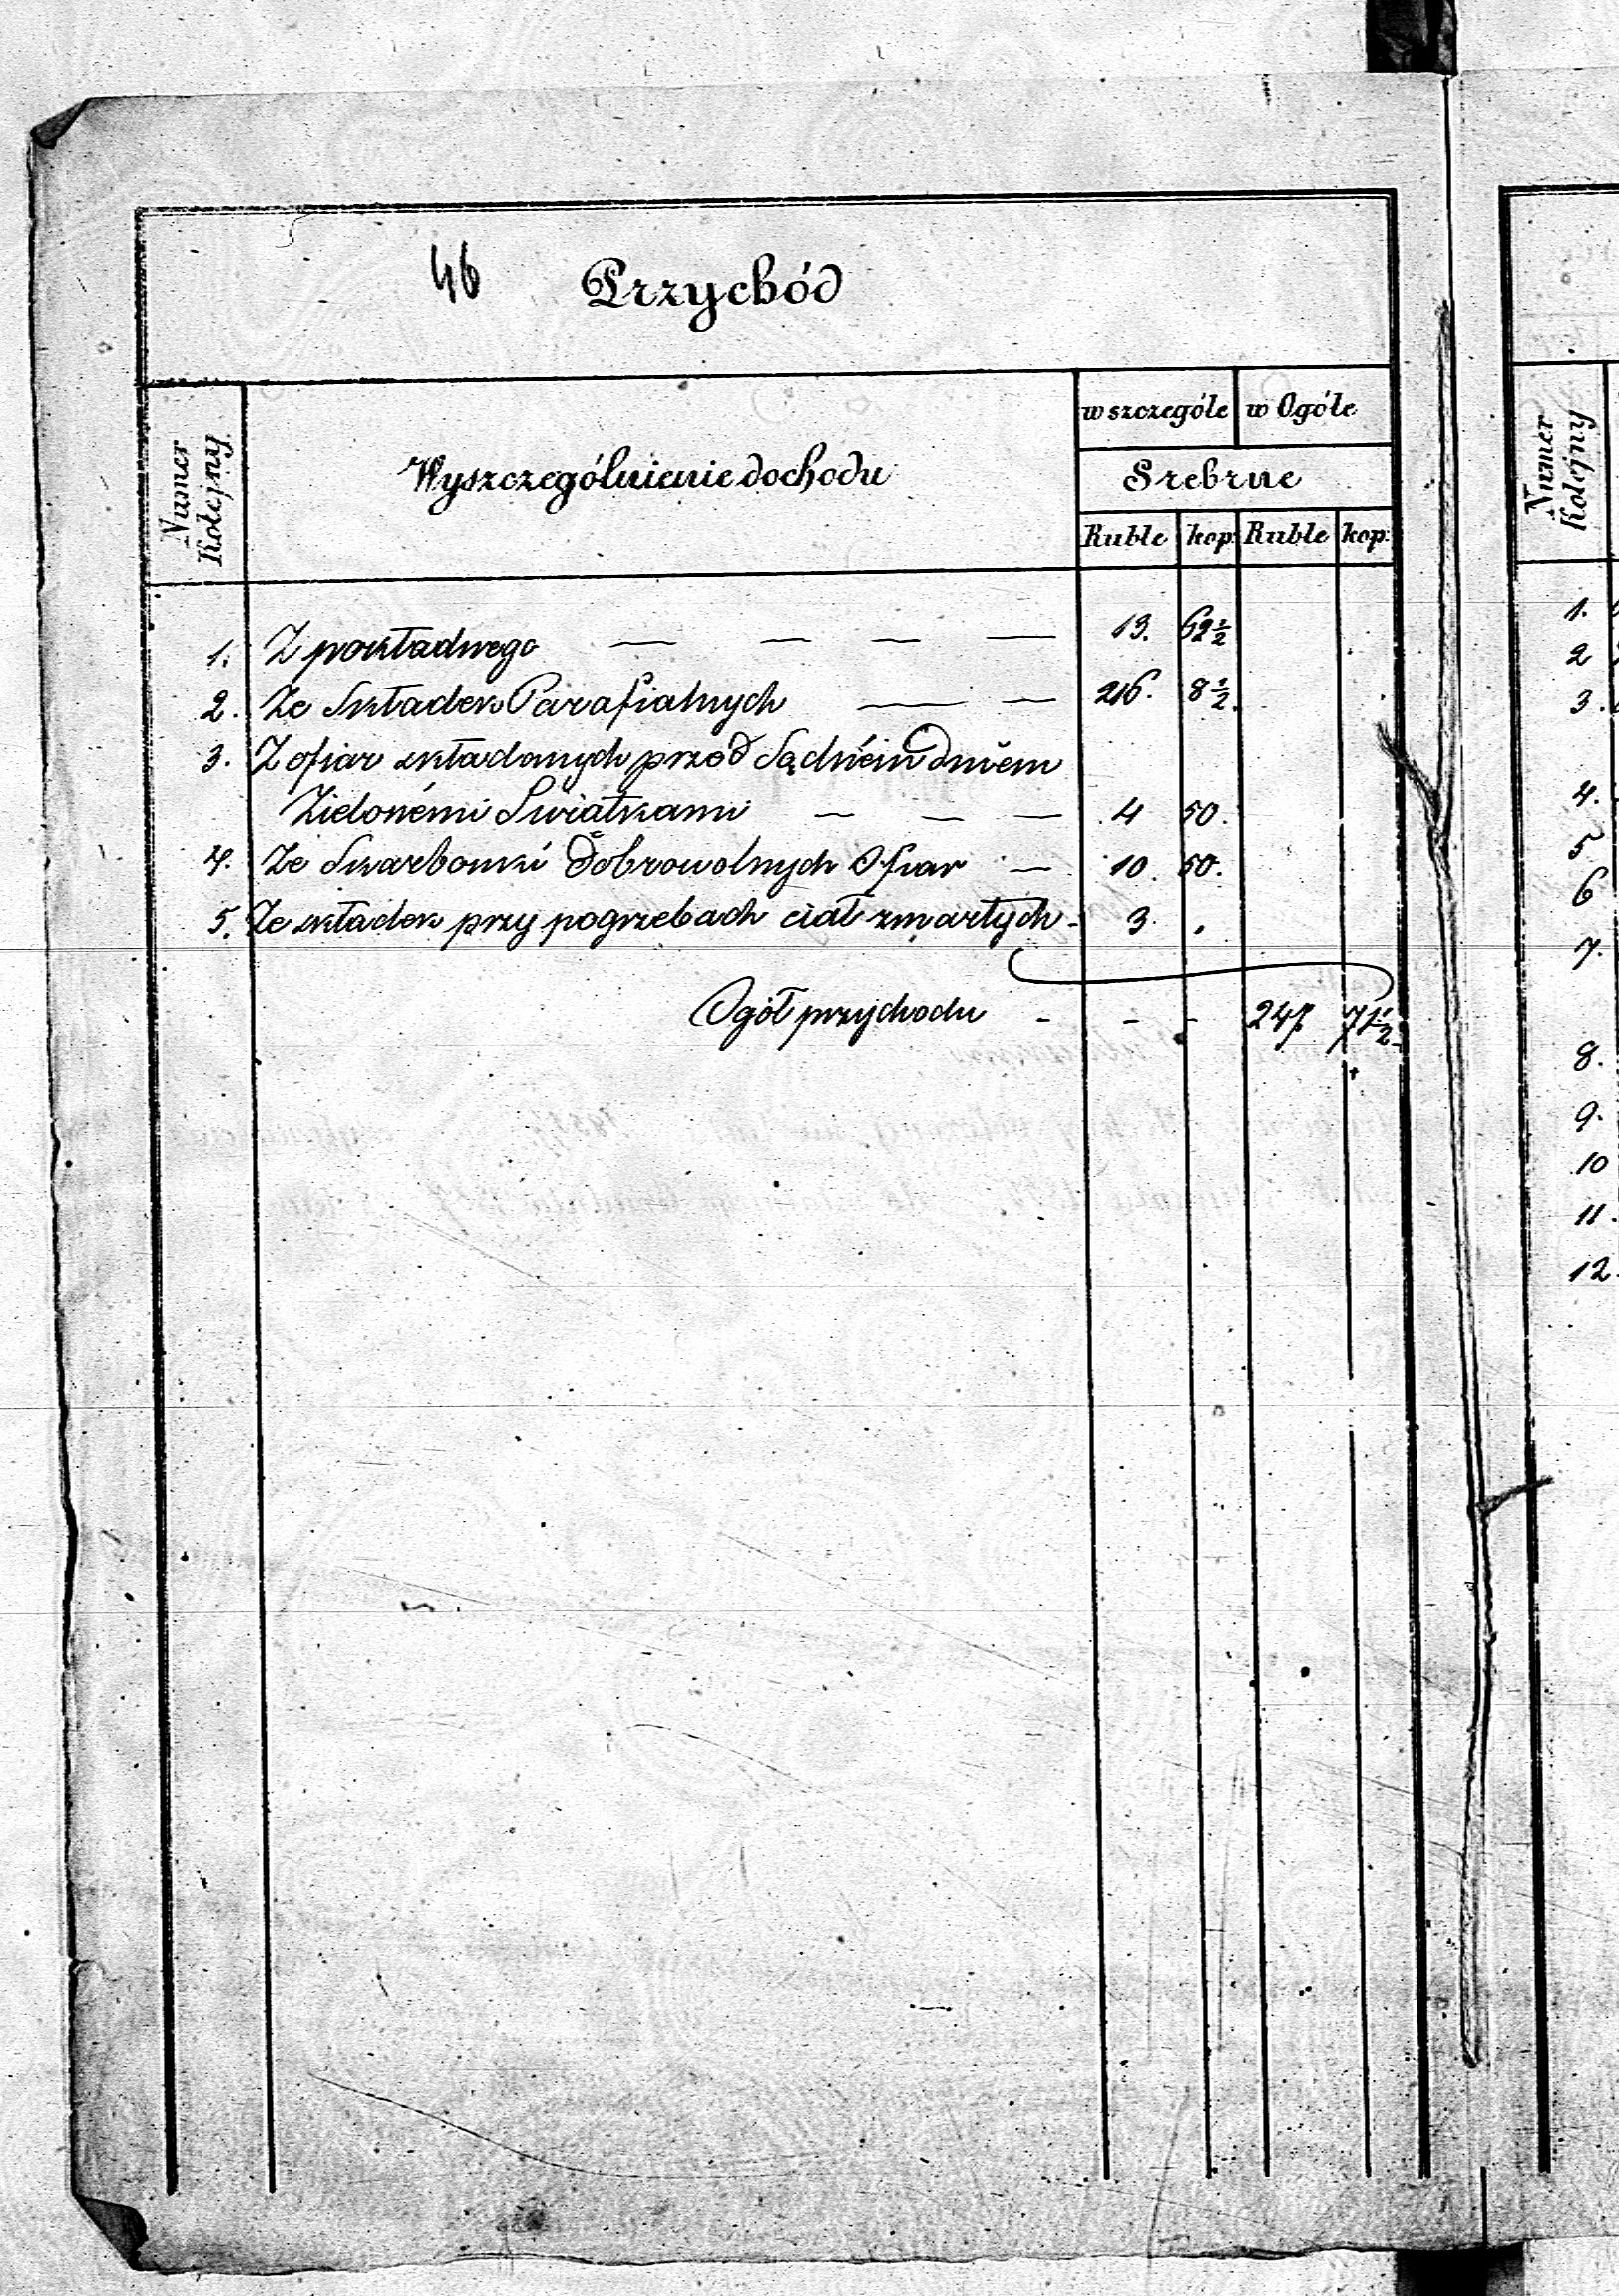 46 Przychód
Numer Kolejny
Wyszczególnienie dochodu
w szczególe w Ogóle
Srebrne
Ruble kop: Ruble kop:
1. Z pokładnego — — — — 13. 62½
2. Ze Składek Parafialnych — — 216. 8½
3. Z ofiar składanych przed Sądném dniem
Zielonémi Swiątkami — — — 4 50.
4. Ze Skarbonki Dobrowolnych Ofiar — 10. 50.
5. Ze składek przy pogrzebach ciał zmarłych - 3. .
Ogół przychodu - - - 247 71½
Numer Kolejny
1.
2
3.
4.
5
6
7.
8.
9.
10
11.
12.